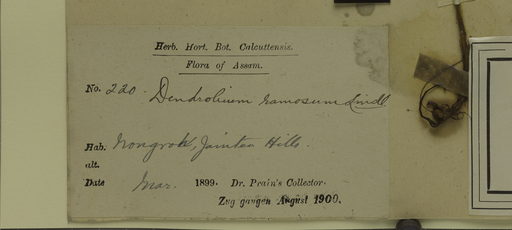 Herb. Hort. Bot. Calcuttensis.
Flora of Assam.
No. 220. Dendrobium ramosum Lindl
Hab. Nongrok, Jaintea Hills.
alt.
Date Mar. 1899. Dr. Prain's Collector.
Zug gangen August 1900.